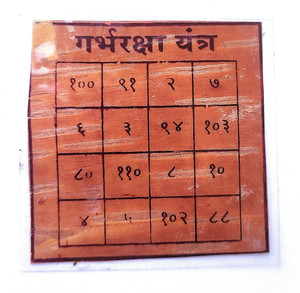 गर्भरक्षा यंत्र
१०० ९१ २ ७
६ ३ ९४ १०३
८० ११० ८ १०
४ ५ १०२ ८८